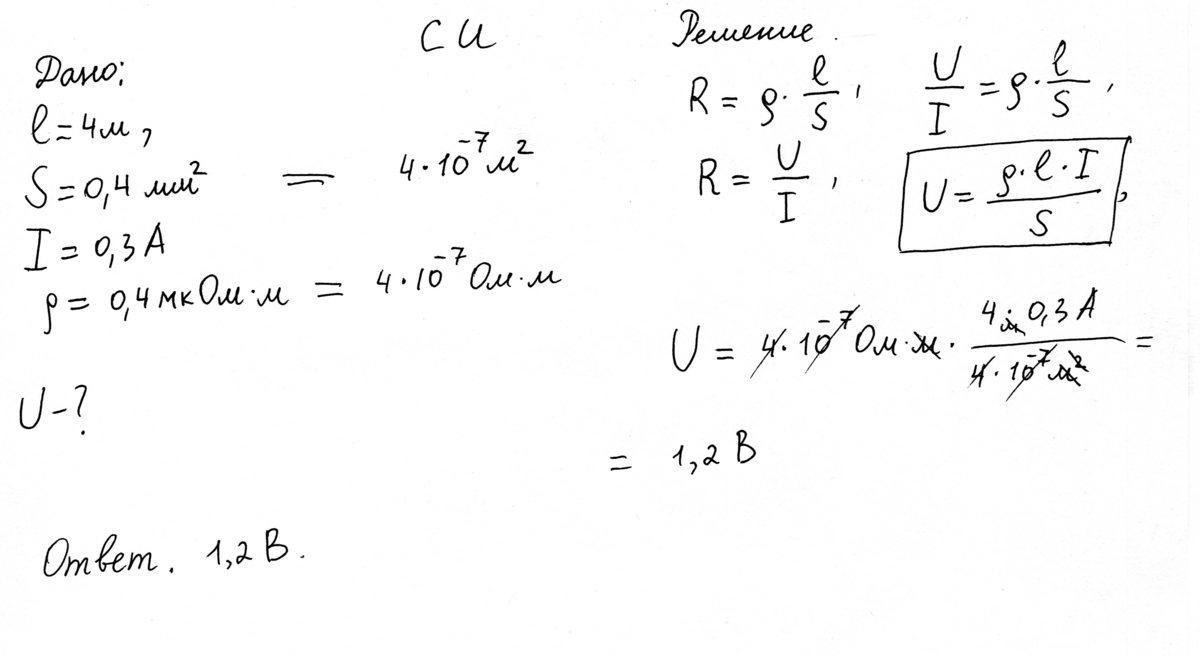 СИ
Дано:
l = 4м,
S = 0,4 мм² = 4·10⁻⁷ м²
I = 0,3 А
ρ = 0,4 мкОм·м = 4·10⁻⁷ Ом·м
U - ?
Решение.
R = ρ · l/S, U/I = ρ · l/S,
R = U/I, U = ρ·l·I/S,
U = 4·10⁻⁷ Ом·м · 4м·0,3 А/4·10⁻⁷ м² =
= 1,2 В
Ответ. 1,2 В.